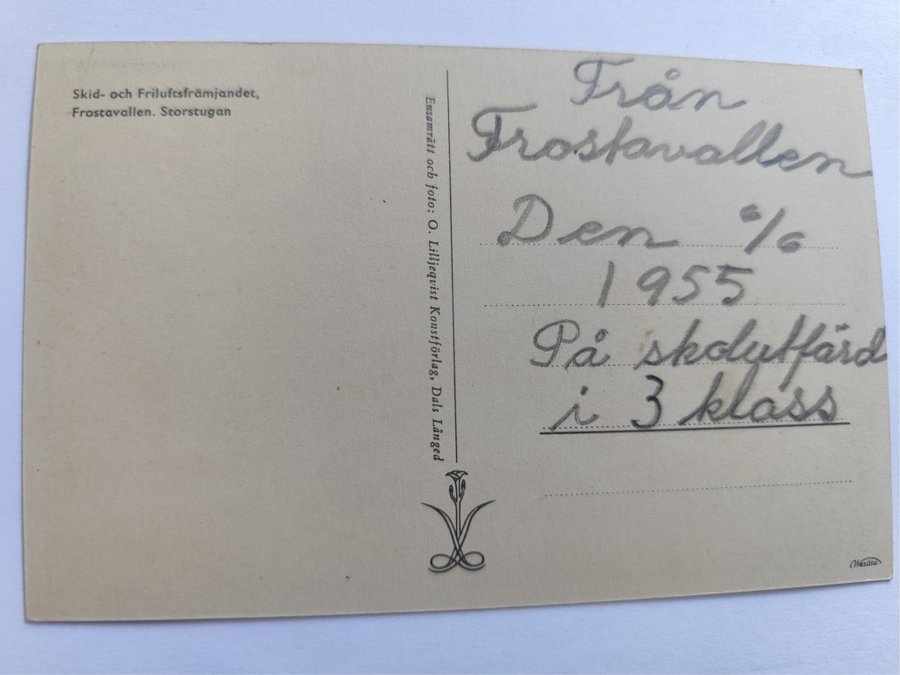 Skid- och Friluftsfrämjandet,
Frostavallen. Storstugan
Ensamrätt och foto: O. Lilljeqvist Konstförlag, Dals Långed
Från
Frostavallen
Den 6/6
1955
På skolutfärd
i 3 klass